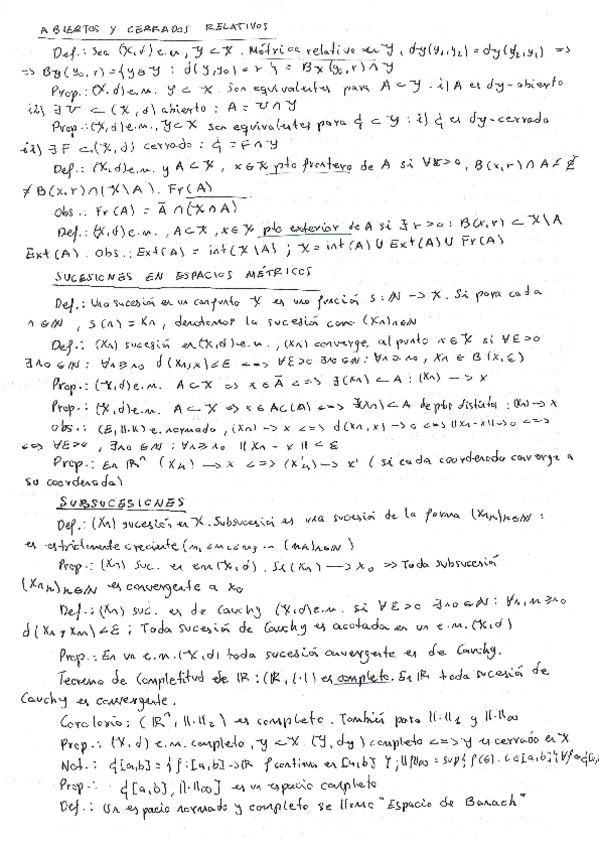 ABIERTOS Y CERRADOS RELATIVOS
Def.: Sea (X,d) e.m, Y⊂X. Métrica relativa en Y, dy(y1,y2) = dy(y2,y1) =>
=> By(y0,r) = {y∈Y : d(y,y0)<r} = Bx(y0,r)∩Y
Prop.: (X,d) e.m. Y⊂X. Son equivalentes para A⊂Y: i) A es dy-abierto
ii) ∃U⊂(X,d) abierto: A = U∩Y
Prop.: (X,d) e.m., Y⊂X son equivalentes para ζ⊂Y: i) ζ es dy-cerrado
ii) ∃F⊂(X,d) cerrado: ζ = F∩Y
Def.: (X,d) e.m. y A⊂X, x∈X pto frontera de A si ∀ε>0, B(x,r)∩A≠∅
≠B(x,r)∩(X\A). Fr(A)
Obs.: Fr(A) = Ā∩(X∩A)
Def.: (X,d) e.m., A⊂X, x∈X pto exterior de A si ∃r>0: B(x,r)⊂X\A
Ext(A). Obs.: Ext(A) = int(X\A); X = int(A)∪Ext(A)∪Fr(A)
SUCESIONES EN ESPACIOS MÉTRICOS
Def.: Una sucesión en un conjunto X es una función s:ℕ->X. Si para cada
n∈ℕ, s(n) = Xn, denotamos la sucesión como (Xn)n∈ℕ
Def.: (Xn) sucesión en (X,d) e.m., (Xn) converge al punto x∈X si ∀ε>0
∃n0∈ℕ: ∀n≥n0 d(Xn,x)<ε <=> ∀ε>0 ∃n0∈ℕ: ∀n≥n0, Xn∈B(x,ε)
Prop.: (X,d) e.m. A⊂X => x∈Ā <=> ∃(Xn)⊂A: (Xn)->x
Prop.: (X,d) e.m. A⊂X => x∈Ac(A) <=> ∃(Xn)⊂A de ptos distintos: (Xn)->x
Obs.: (E,||·||) e. normado, (Xn)->x <=> d(Xn,x)->0 <=> ||Xn-x||->0 <=>
<=> ∀ε>0, ∃n0∈ℕ: ∀n≥n0 ||Xn-x||<ε
Prop.: En ℝ^n (Xn)->x <=> (X'n)->x' (si cada coordenada converge a
su coordenada)
SUBSUCESIONES
Def.: (Xn) sucesión en X. Subsucesión es una sucesión de la forma (Xnk)k∈ℕ:
es estrictamente creciente (n1<n2<n3 ... (nk)k∈ℕ)
Prop.: (Xn) suc. en em (X,d). Si (Xn)->x0 => Toda subsucesión
(Xnk)k∈ℕ es convergente a x0
Def.: (Xn) suc. es de Cauchy (X,d) e.m. si ∀ε>0 ∃n0∈ℕ: ∀n,m≥n0
d(Xn,Xm)<ε; Toda sucesión de Cauchy es acotada en un e.m. (X,d)
Prop.: En un e.m. (X,d) toda sucesión convergente es de Cauchy.
Teorema de Completitud de ℝ: (ℝ,|·|) es completo. En ℝ toda sucesión de
Cauchy es convergente.
Corolario: (ℝ^n,||·||2) es completo. También para ||·||1 y ||·||∞
Prop.: (X,d) e.m. completo, Y⊂X. (Y,dy) completo <=> Y es cerrado en X
Not.: ζ[a,b] = {f:[a,b]->ℝ f continua en [a,b]}; ||f||∞ = sup{f(t): t∈[a,b]} ∀f∈ζ[a,b]
Prop.: ζ[a,b], ||·||∞] es un espacio completo
Def.: Un espacio normado y completo se llama "Espacio de Banach"